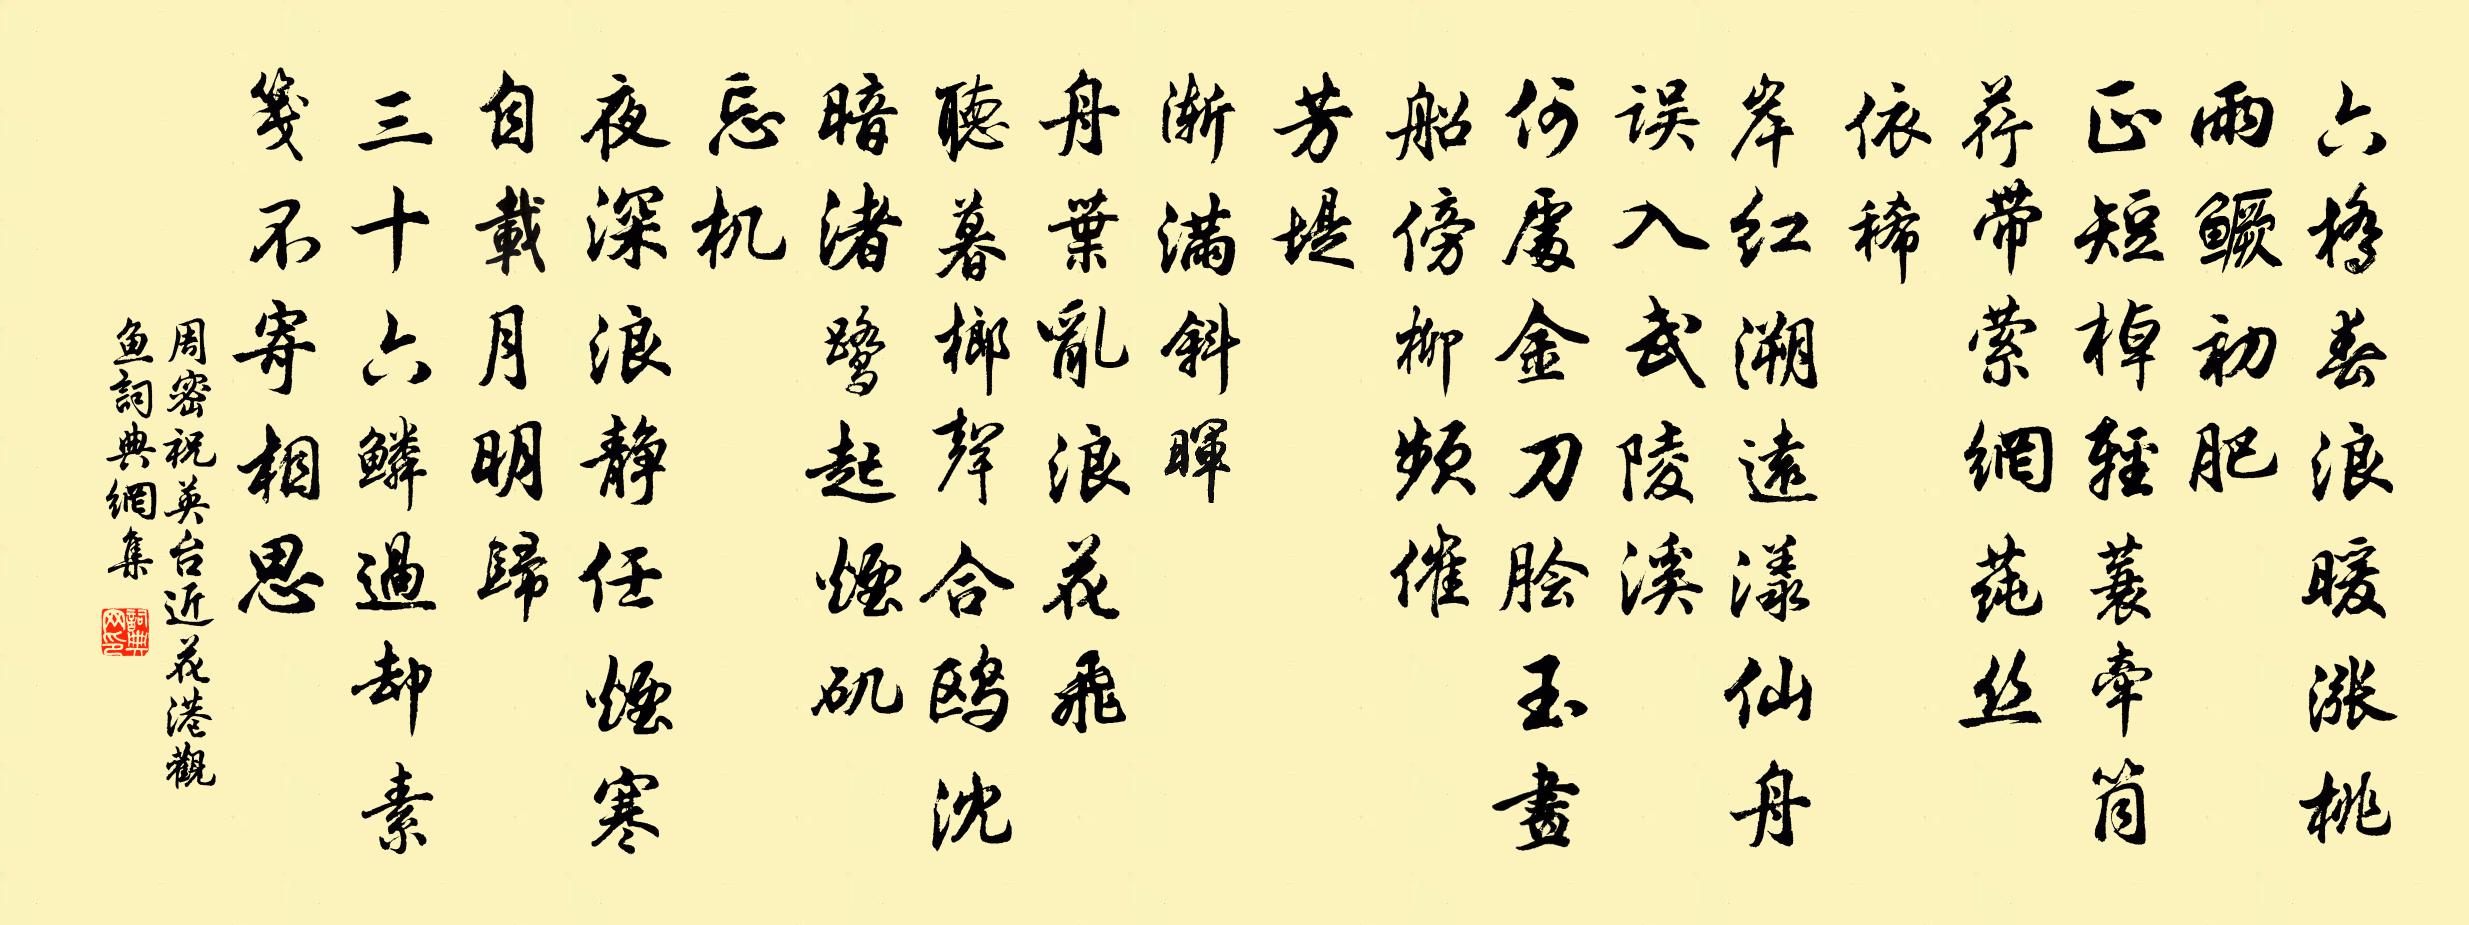 六橋春浪暖漲桃
雨鳜初肥
正短棹輕蓑牽筒
荇带萦網莼丝
依稀
岸红溯遠漾仙舟
误入武陵溪
何處金刀脍玉畫
船傍柳频催
芳堤
漸满斜暉
舟葉亂浪花飛
聽暮榔聲合鸥沈
暗渚鹭起煙矶
忘机
夜深浪静任煙寒
自載月明歸
三十六鳞過却素
笺不寄相思
周密祝英台近花港觀
鱼詞典網集
詞典網印